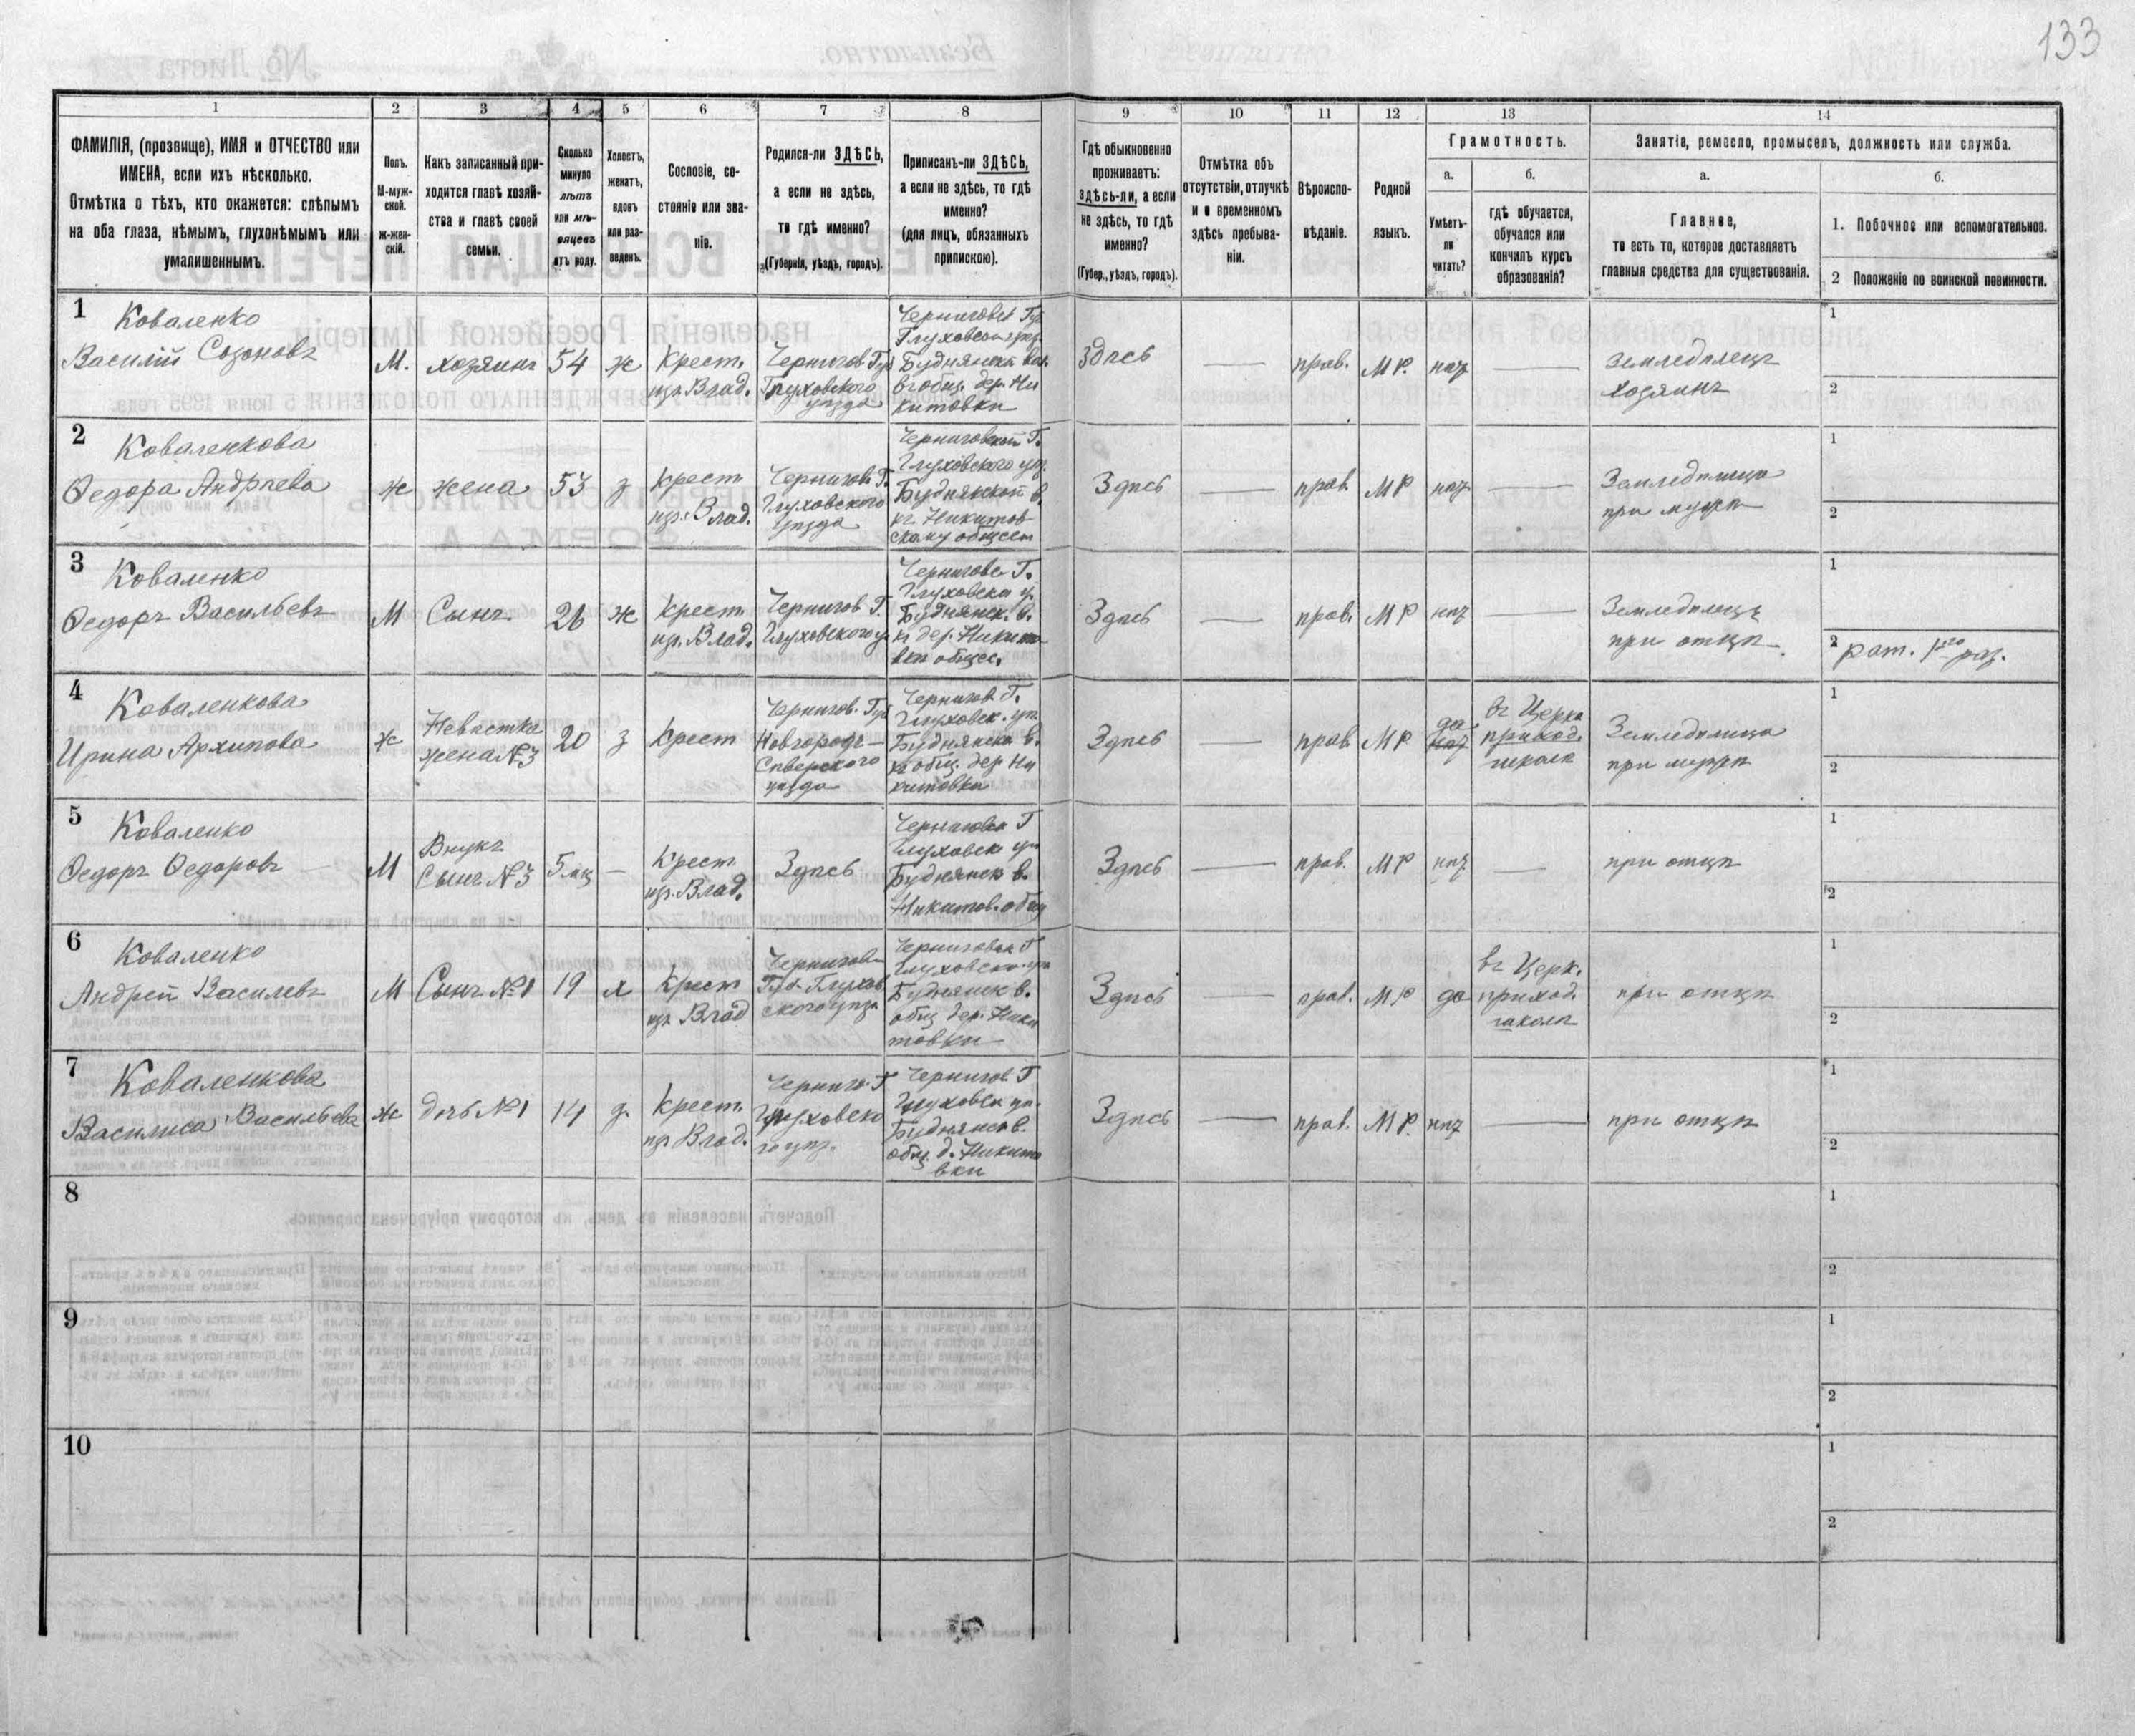 133
1 2 3 4 5 6 7 8 9 10 11 12 13 14
ФАМИЛІЯ, (прозвище), ИМЯ и ОТЧЕСТВО или
ИМЕНА, если ихъ нѣсколько.
Отмѣтка о тѣхъ, кто окажется: слѣпымъ
на оба глаза, нѣмымъ, глухонѣмымъ или
умалишеннымъ.
Полъ.
М-муж-
ской.
Ж-жен-
скій.
Какъ записанный при-
ходится главѣ хозяй-
ства и главѣ своей
семьи.
Сколько
минуло
лѣтъ
или мѣ-
сяцевъ
отъ роду.
Холостъ,
женатъ,
вдовъ
или раз-
веденъ.
Сословіе, со-
стояніе или зва-
ніе.
Родился-ли ЗДѢСЬ,
а если не здѣсь,
то гдѣ именно?
(Губернія, уѣздъ, городъ).
Приписанъ-ли ЗДѢСЬ,
а если не здѣсь, то гдѣ
именно?
(для лицъ, обязанныхъ
припискою).
Гдѣ обыкновенно
проживаетъ:
здѣсь-ли, а если
не здѣсь, то гдѣ
именно?
(Губер., уѣздъ, городъ).
Отмѣтка объ
отсутствіи, отлучкѣ
и о временномъ
здѣсь пребыва-
ніи.
Вѣроиспо-
вѣданіе.
Родной
языкъ.
Грамотность.
а.
Умѣетъ-
ли
читать?
б.
гдѣ обучается,
обучался или
кончилъ курсъ
образованія?
Занятіе, ремесло, промыселъ, должность или служба.
а.
Главное,
то есть то, которое доставляетъ
главныя средства для существованія.
б.
1. Побочное или вспомогательное.
2 Положеніе по воинской повинности.
1
Коваленко
Василій Созоновъ
М. хозяинъ 54 ж
Крест.
изъ Влад.
Чернигов Губ
Глуховского
уѣзда
Черниговск Губ
Глуховск уѣз.
Буднянска вол.
въ общ. дер. Ни
китовки
Здѣсь — прав. МР. нѣтъ —
Земледѣлецъ
хозяинъ
1
2
2
Коваленкова
Ѳедора Андрѣева
ж жена 53 з
Крест
изъ Влад.
Чернигов. Г.
Глуховского
уѣзда
Черниговской Г.
Глуховского уѣз.
Буднянской в.
къ Никитов
скому общест
Здѣсь — прав. МР нѣтъ —
Земледѣлица
при мужѣ
1
2
3
Коваленко
Ѳедоръ Васильевъ
М Сынъ 26 ж
Крест.
изъ. Влад.
Чернигов Г.
Глуховского у.
Черниговс Г.
Глуховска у.
Буднянск. в.
къ дер. Никито
вки общес.
Здѣсь — прав. МР нѣтъ —
Земледѣлецъ
при отцѣ
1
2 рат. 1го раз.
4
Коваленкова
Ирина Архипова
ж
Невѣстка
жена №3
20 з Крест
Чернигов. Губ
Новгородъ-
Сѣверского
уѣзда
Чернигов. Г.
Глуховск. уѣз.
Буднянска в.
къ общ. дер Ни
китовки
Здѣсь — прав МР
да
нѣтъ
въ Церко
приход.
школѣ
Земледѣлица
при мужѣ
1
2
5
Коваленко
Ѳедоръ Ѳедоровъ
М
Внукъ
Сынъ №3
5 мц —
Крест
изъ. Влад.
Здѣсь
Черниговск Г
Глуховск уѣ
Буднянск в.
Никитов. общ
Здѣсь — прав. МР нѣтъ —
при отцѣ
1
2
6
Коваленко
Андрей Василевъ
М Сынъ №1 19 х
Крест
изъ Влад
Чернигов
Губ Глухов
ского уѣзд
Черниговск Г
Глуховск уѣз
Буднянск в.
общ дер. Ники
товки
Здѣсь — прав. МР да
въ Церк.
приход.
школѣ
при отцѣ
1
2
7
Коваленкова
Василиса Васильева
ж дочь №1 14 д.
Крест.
изъ Влад.
Черниго Г
Глуховско
го уѣз.
Чернигов. Г
Глуховск уѣ.
Буднянск в.
общ. д. Никито
вки
Здѣсь — прав. МР. нѣтъ —
при отцѣ
1
2
8
1
2
9
1
2
10
1
2